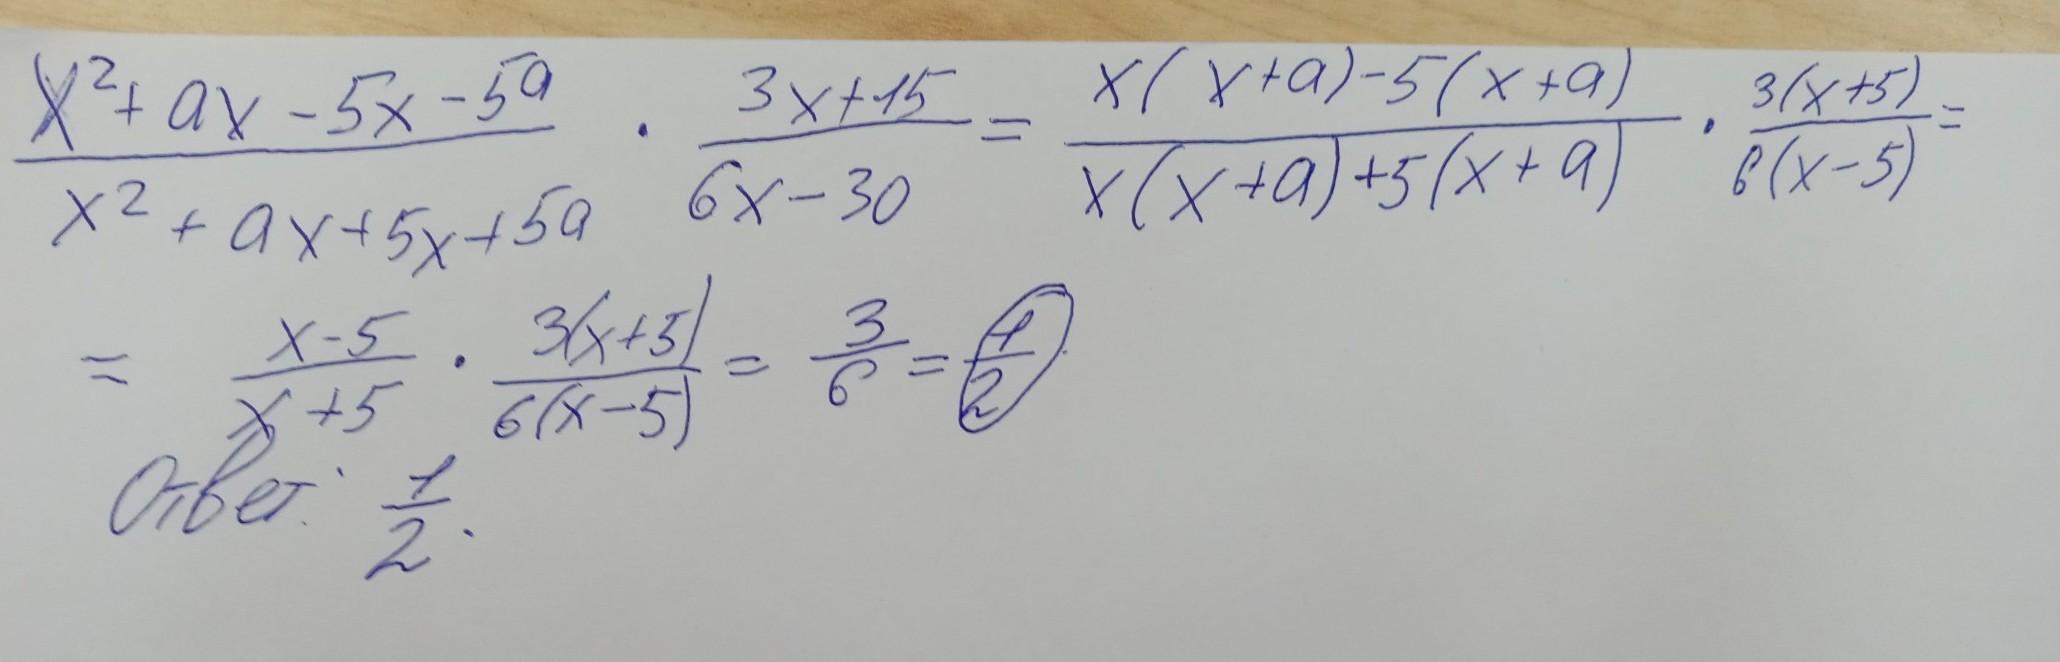 (x² + ax - 5x - 5a)/(x² + ax + 5x + 5a) · (3x + 15)/(6x - 30) = (x(x + a) - 5(x + a))/(x(x + a) + 5(x + a)) · 3(x + 5)/6(x - 5) =
= (x - 5)/(x + 5) · 3(x + 5)/6(x - 5) = 3/6 = 1/2
Ответ: 1/2.